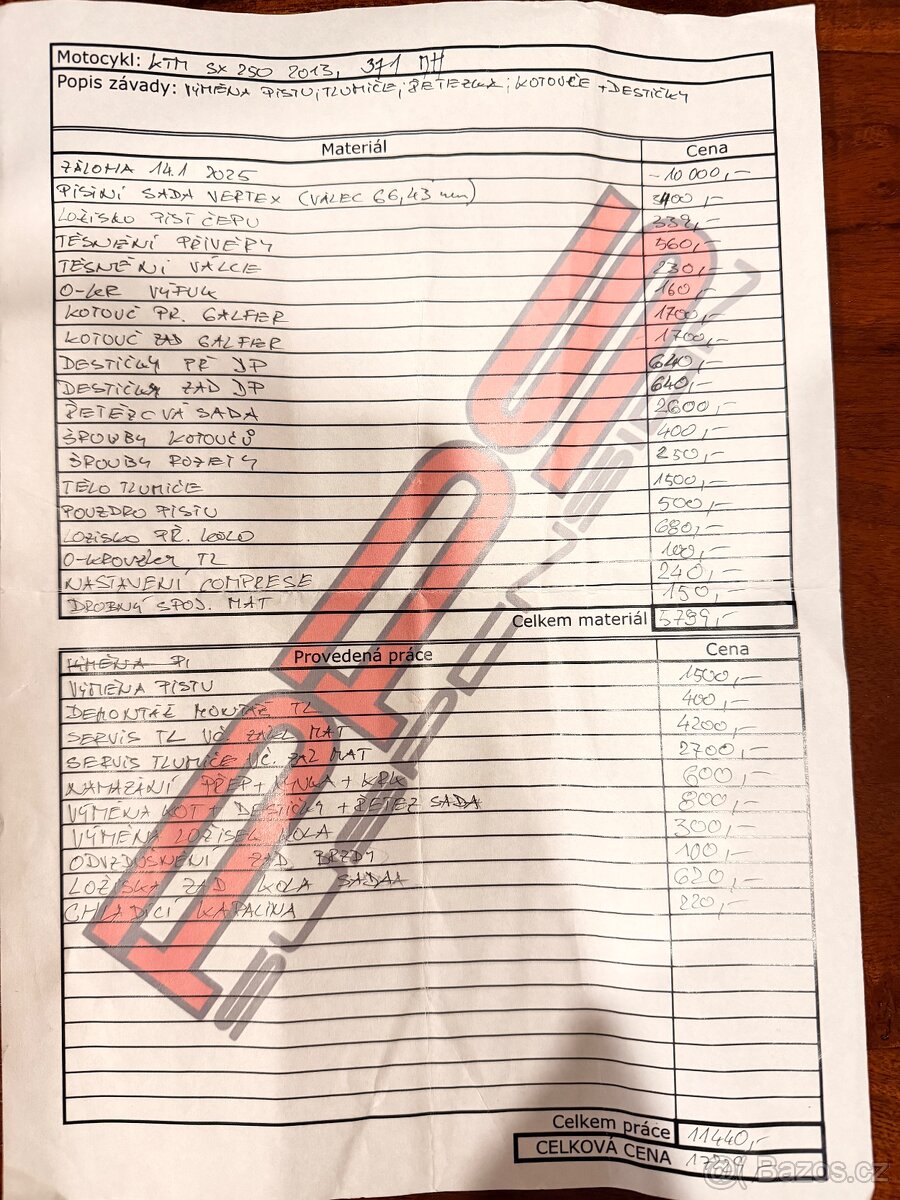 Motocykl: KTM SX 250 2013, 371 MH
Popis závady: VÝMĚNA PÍSTU, TLUMIČE, ŘETĚZKA, KOTOUČE + DESTIČKY
Materiál Cena
ZÁLOHA 14.1 2025 -10 000,-
PÍSTNÍ SADA VERTEX (VÁLEC 66,43 mm) 3400,-
LOŽISKO PÍST ČEPU 339,-
TĚSNĚNÍ PŘÍVĚRY 560,-
TĚSNĚNÍ VÁLCE 230,-
O-KR VÝFUK 160,-
KOTOUČ PŘ. GALFER 1700,-
KOTOUČ ZAD GALFER 1700,-
DESTIČKY PŘ DP 640,-
DESTIČKY ZAD DP 640,-
ŘETĚZOVÁ SADA 2600,-
ŠROUBY KOTOUČŮ 400,-
ŠROUBY ROZETY 250,-
TĚLO TLUMIČE 1500,-
POUZDRO PÍSTU 500,-
LOŽISKO PŘ. KOLO 680,-
O-KROUŽKY TL 100,-
NASTAVENÍ COMPRESE 240,-
DROBNÝ SPOJ. MAT 150,-
Celkem materiál 5789,-
VÝMĚNA PI Provedená práce Cena
VÝMĚNA PÍSTU 1500,-
DEMONTÁŽ MONTÁŽ TL 400,-
SERVIS TL VČ. ZÁKL MAT 4200,-
SERVIS TLUMIČE VČ. ZÁKL MAT 2700,-
NAMAZÁNÍ PŘEP + KYVKA + KRK 600,-
VÝMĚNA KOT + DESTIČKY + ŘETĚZ SADA 800,-
VÝMĚNA LOŽISEK KOLA 300,-
ODVZDUŠNĚNÍ ZAD BRZDY 100,-
LOŽISKA ZAD KOLA SADA 620,-
CHLADÍCÍ KAPALINA 220,-
Celkem práce 11440,-
CELKOVÁ CENA
DPS SUSPENSION
Bazos.cz